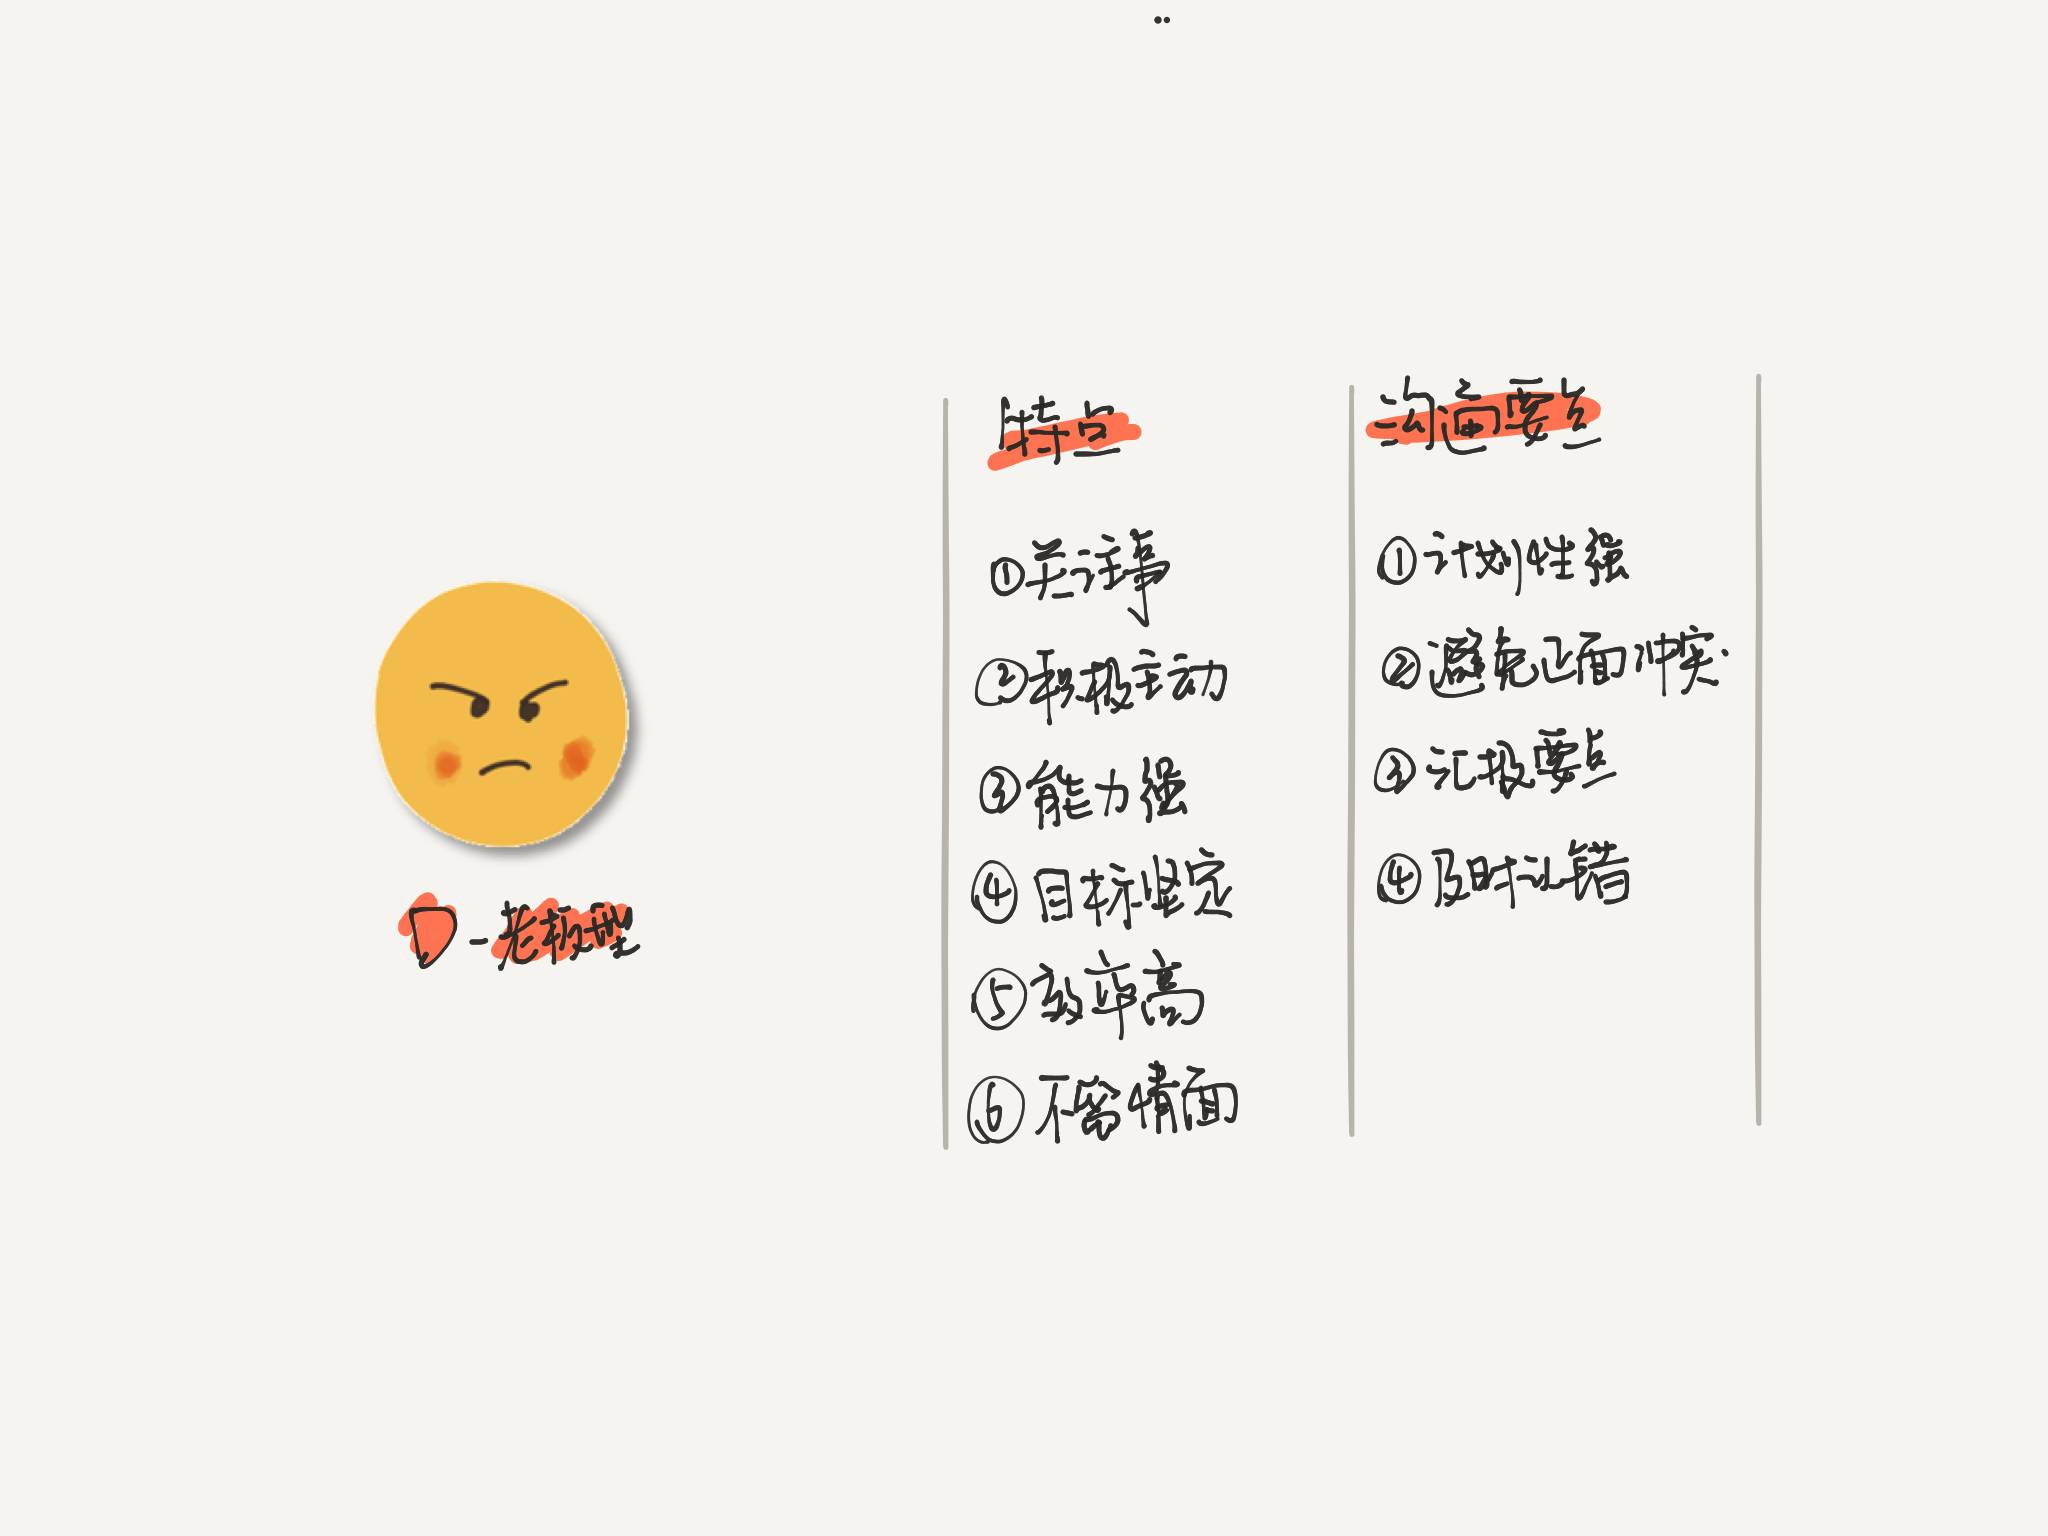 D-老板型
特点
①关注事
②积极主动
③能力强
④目标坚定
⑤效率高
⑥不留情面
沟通要点
①计划性强
②避免正面冲突.
③汇报要点
④及时认错